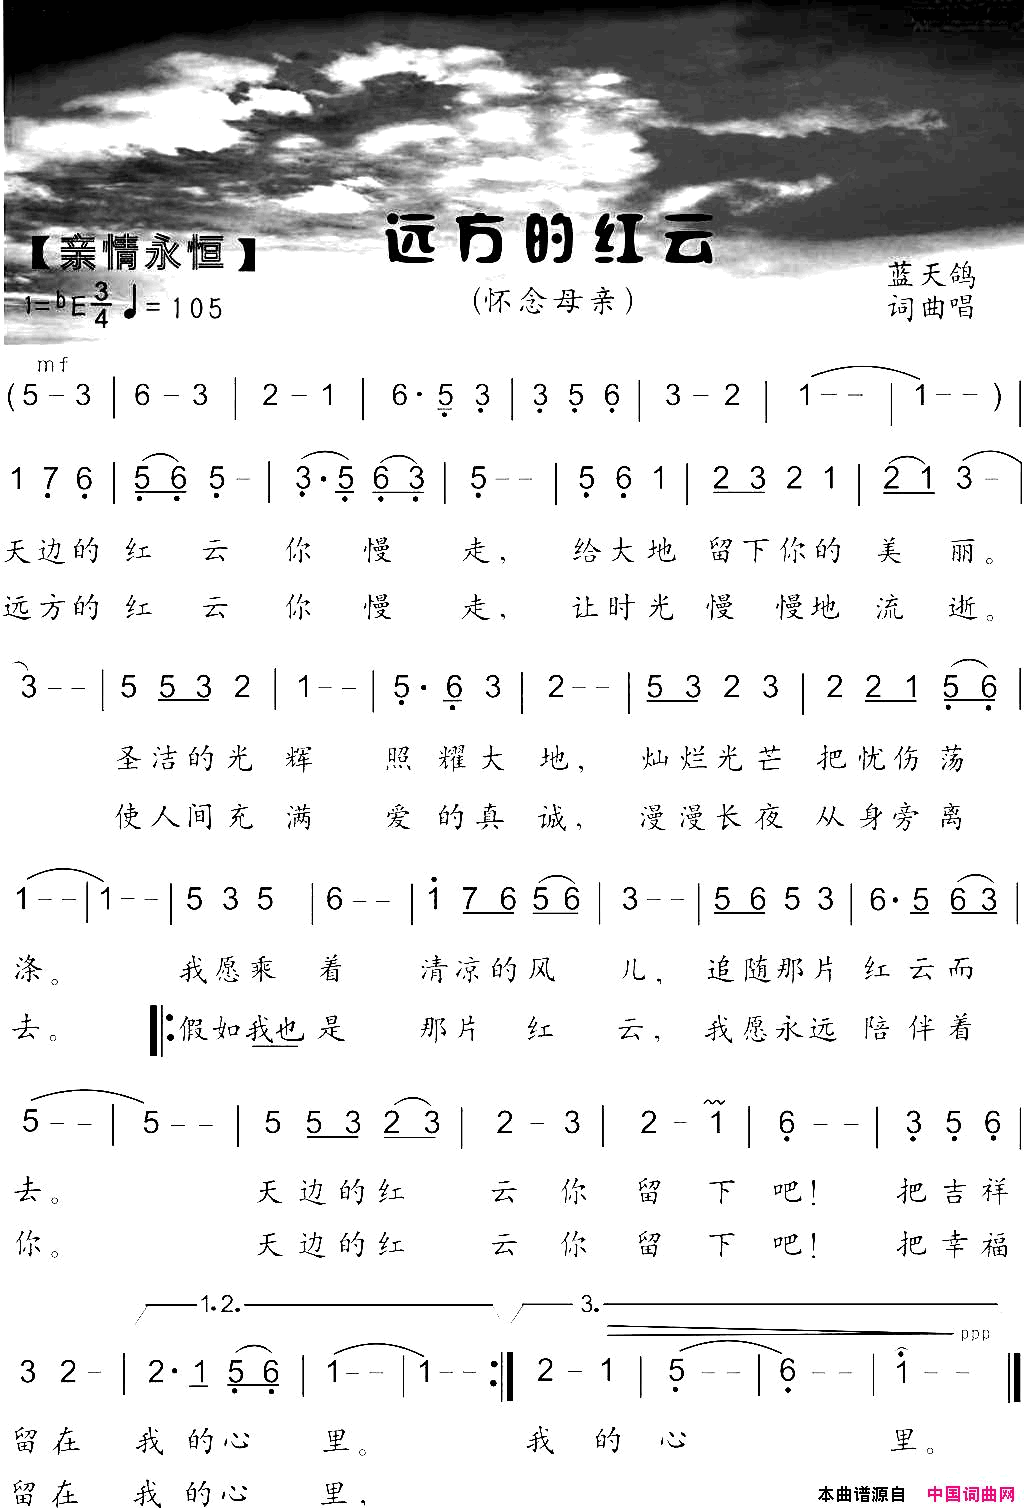 远方的红云
【亲情永恒】
(怀念母亲)
蓝天鸽
词曲唱
1=bE 3/4 ♩=105
mf
(5 – 3 | 6 – 3 | 2 – 1 | 6· 5 3 | 3 5 6 | 3 – 2 | 1 – – | 1 – – ) |
1 7 6 | 5 6 5 – | 3· 5 6 3 | 5 – – | 5 6 1 | 2 3 2 1 | 2 1 3 – |
天边的 红 云 你 慢 走, 给大地 留下你的 美 丽。
远方的 红 云 你 慢 走, 让时光 慢 慢地 流 逝。
3 – – | 5 5 3 2 | 1 – – | 5· 6 3 | 2 – – | 5 3 2 3 | 2 2 1 5 6 |
圣洁的光 辉 照 耀大 地, 灿烂光芒 把忧伤荡
使人间充 满 爱 的真 诚, 漫漫长夜 从身旁离
1 – – | 1 – – | 5 3 5 | 6 – – | 1 7 6 5 6 | 3 – – | 5 6 5 3 | 6· 5 6 3 |
涤。 我愿乘 着 清凉的风 儿, 追随那片 红云而
去。 假如我也是 那片 红 云, 我愿永远 陪伴着
5 – – | 5 – – | 5 5 3 2 3 | 2 – 3 | 2 – 1 | 6 – – | 3 5 6 |
去。 天边的红 云 你 留 下 吧! 把吉祥
你。 天边的红 云 你 留 下 吧! 把幸福
1. 2. 3.
ppp
3 2 – | 2· 1 5 6 | 1 – – | 1 – – :| 2 – 1 | 5 – – | 6 – – | 1 – – ‖
留在 我 的心 里。 我 的 心 里。
留在 我 的心 里,
本曲谱源自 中国词曲网